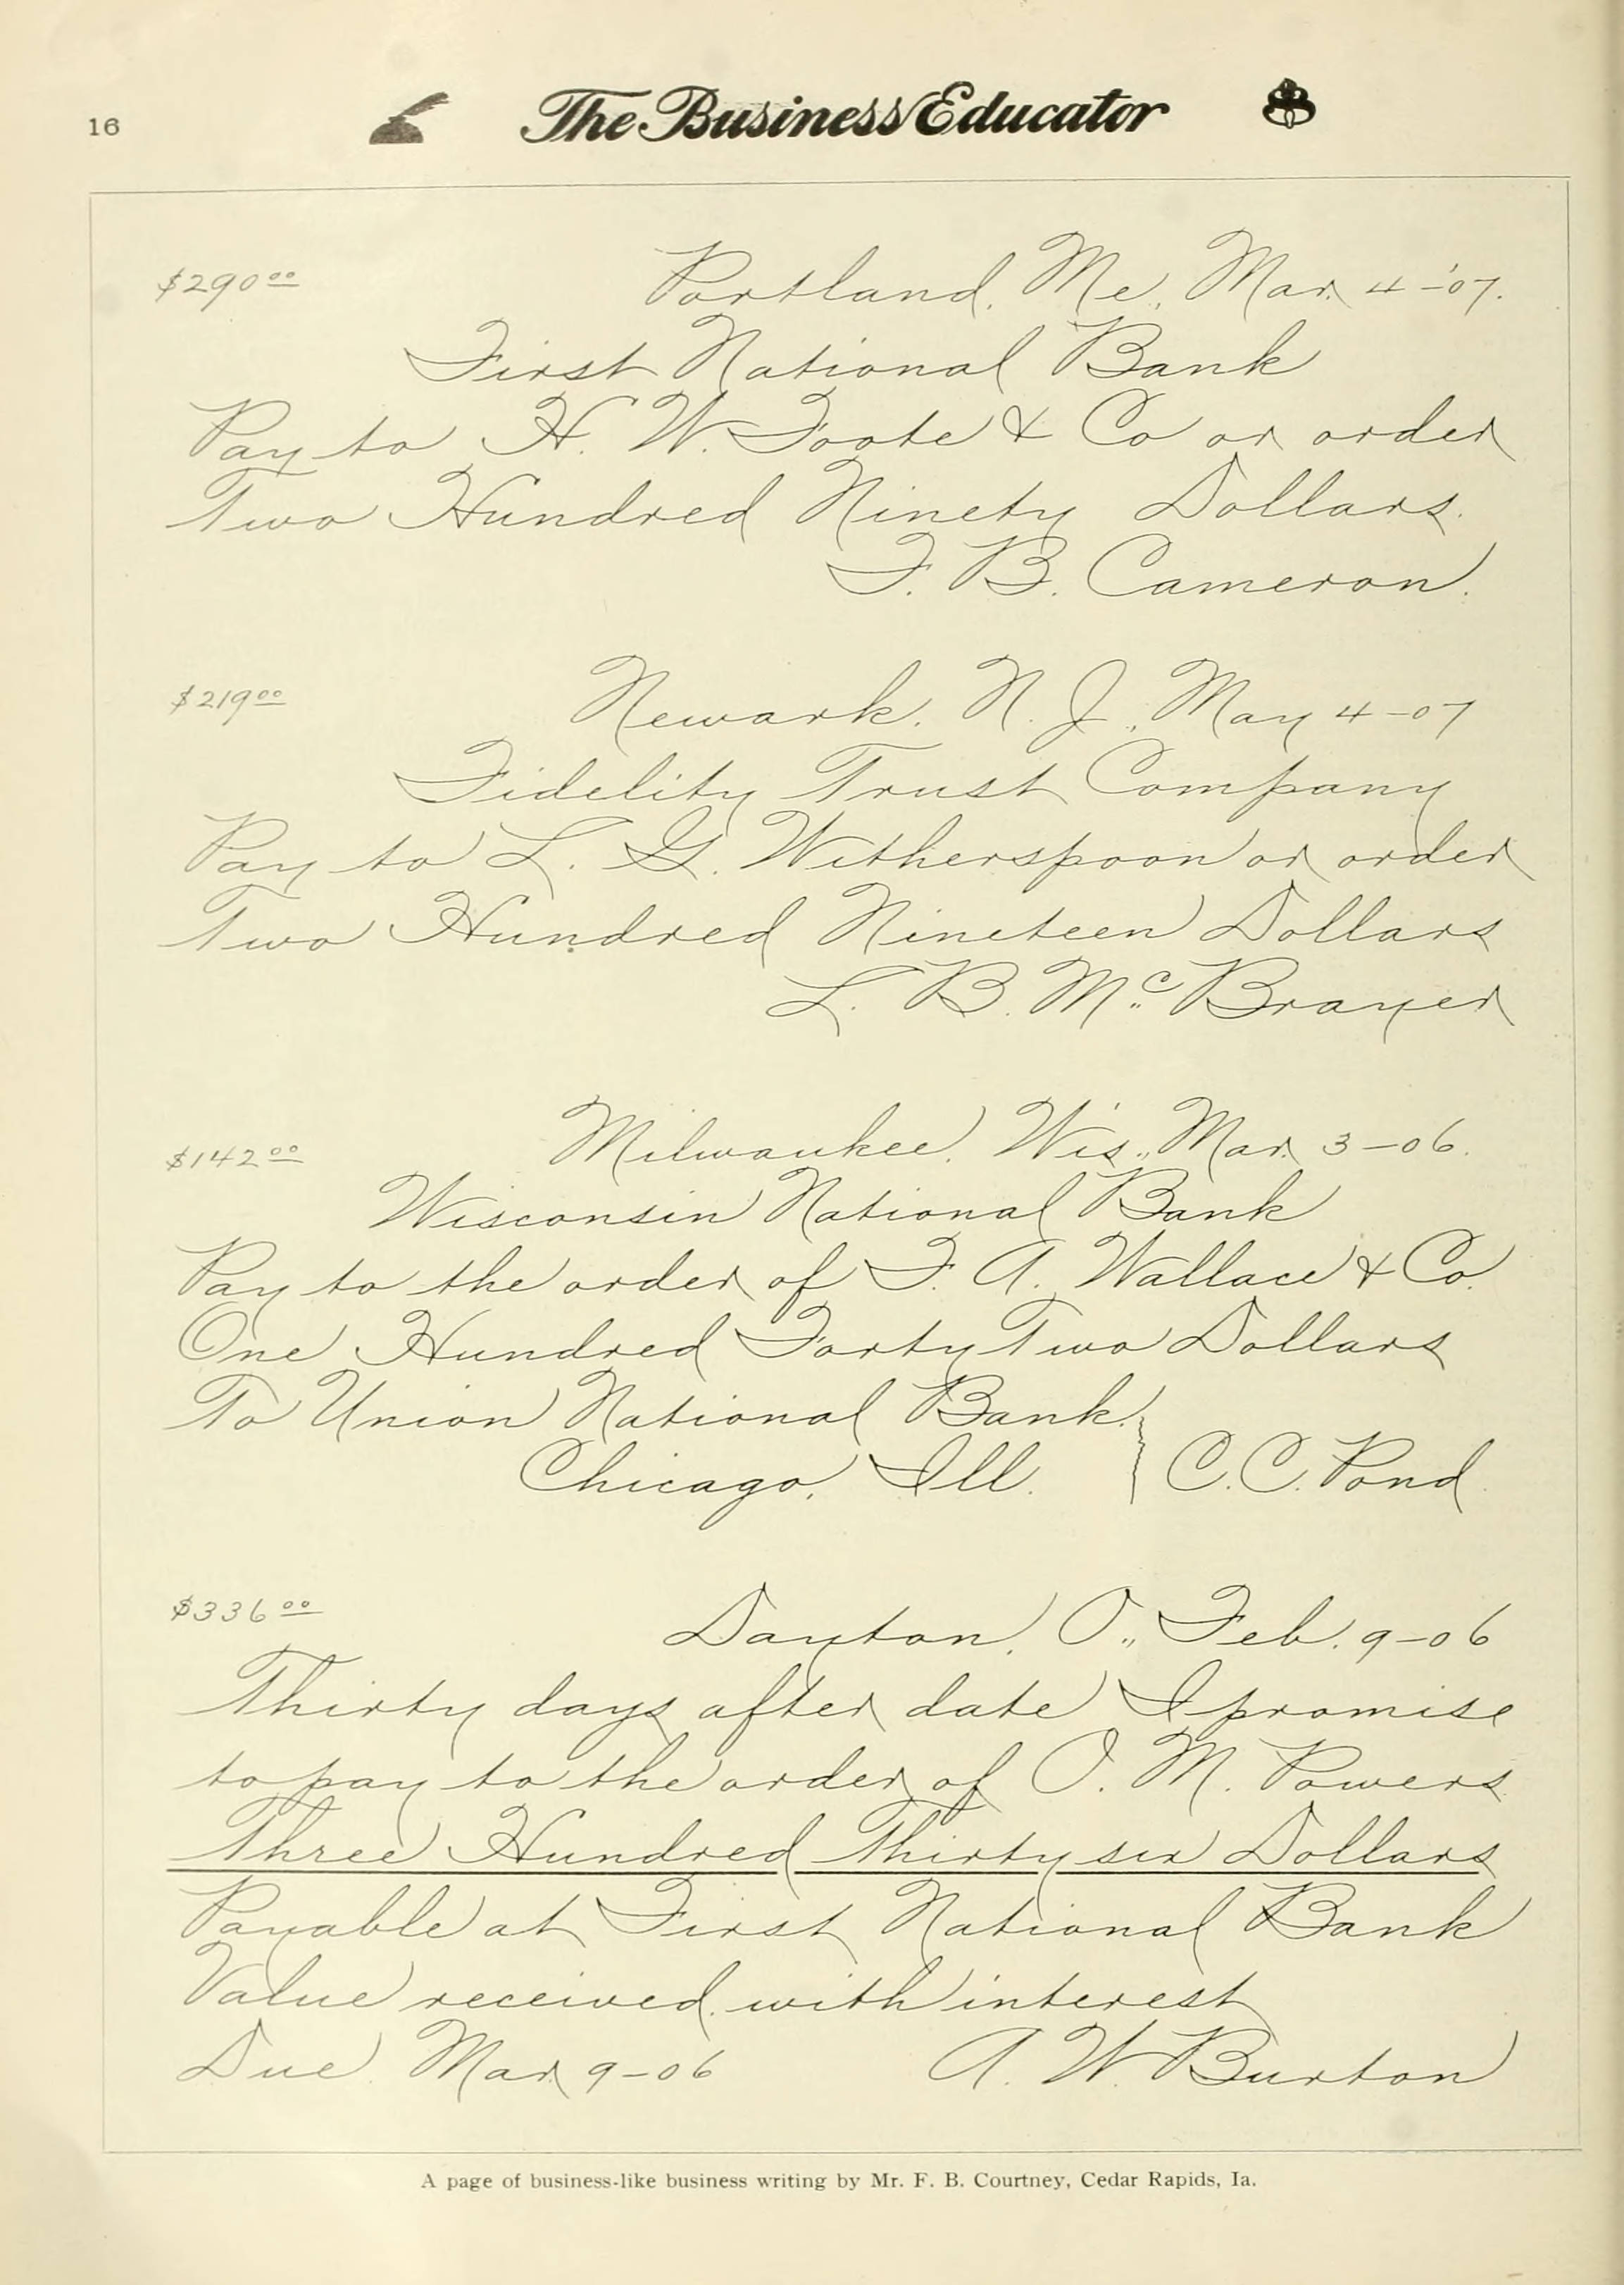 16
The Business Educator
$290 00 Portland, Me., Mar. 4-'07.
First National Bank
Pay to H. W. Foote & Co or order
Two Hundred Ninety Dollars.
F. B. Cameron.
$219 00 Newark, N. J., May 4-07
Fidelity Trust Company
Pay to L. G. Witherspoon or order
Two Hundred Nineteen Dollars
L. B. McBrayer
$142 00 Milwaukee, Wis., Mar. 3-06.
Wisconsin National Bank
Pay to the order of F. A. Wallace & Co.
One Hundred Forty Two Dollars
To Union National Bank.
Chicago, Ill. } C. C. Pond.
$336 00 Dayton, O., Feb. 9-06
Thirty days after date I promise
to pay to the order of O. M. Powers
Three Hundred Thirty six Dollars
Payable at First National Bank
Value received, with interest
Due Mar. 9-06 A. W. Burton
A page of business-like business writing by Mr. F. B. Courtney, Cedar Rapids, Ia.